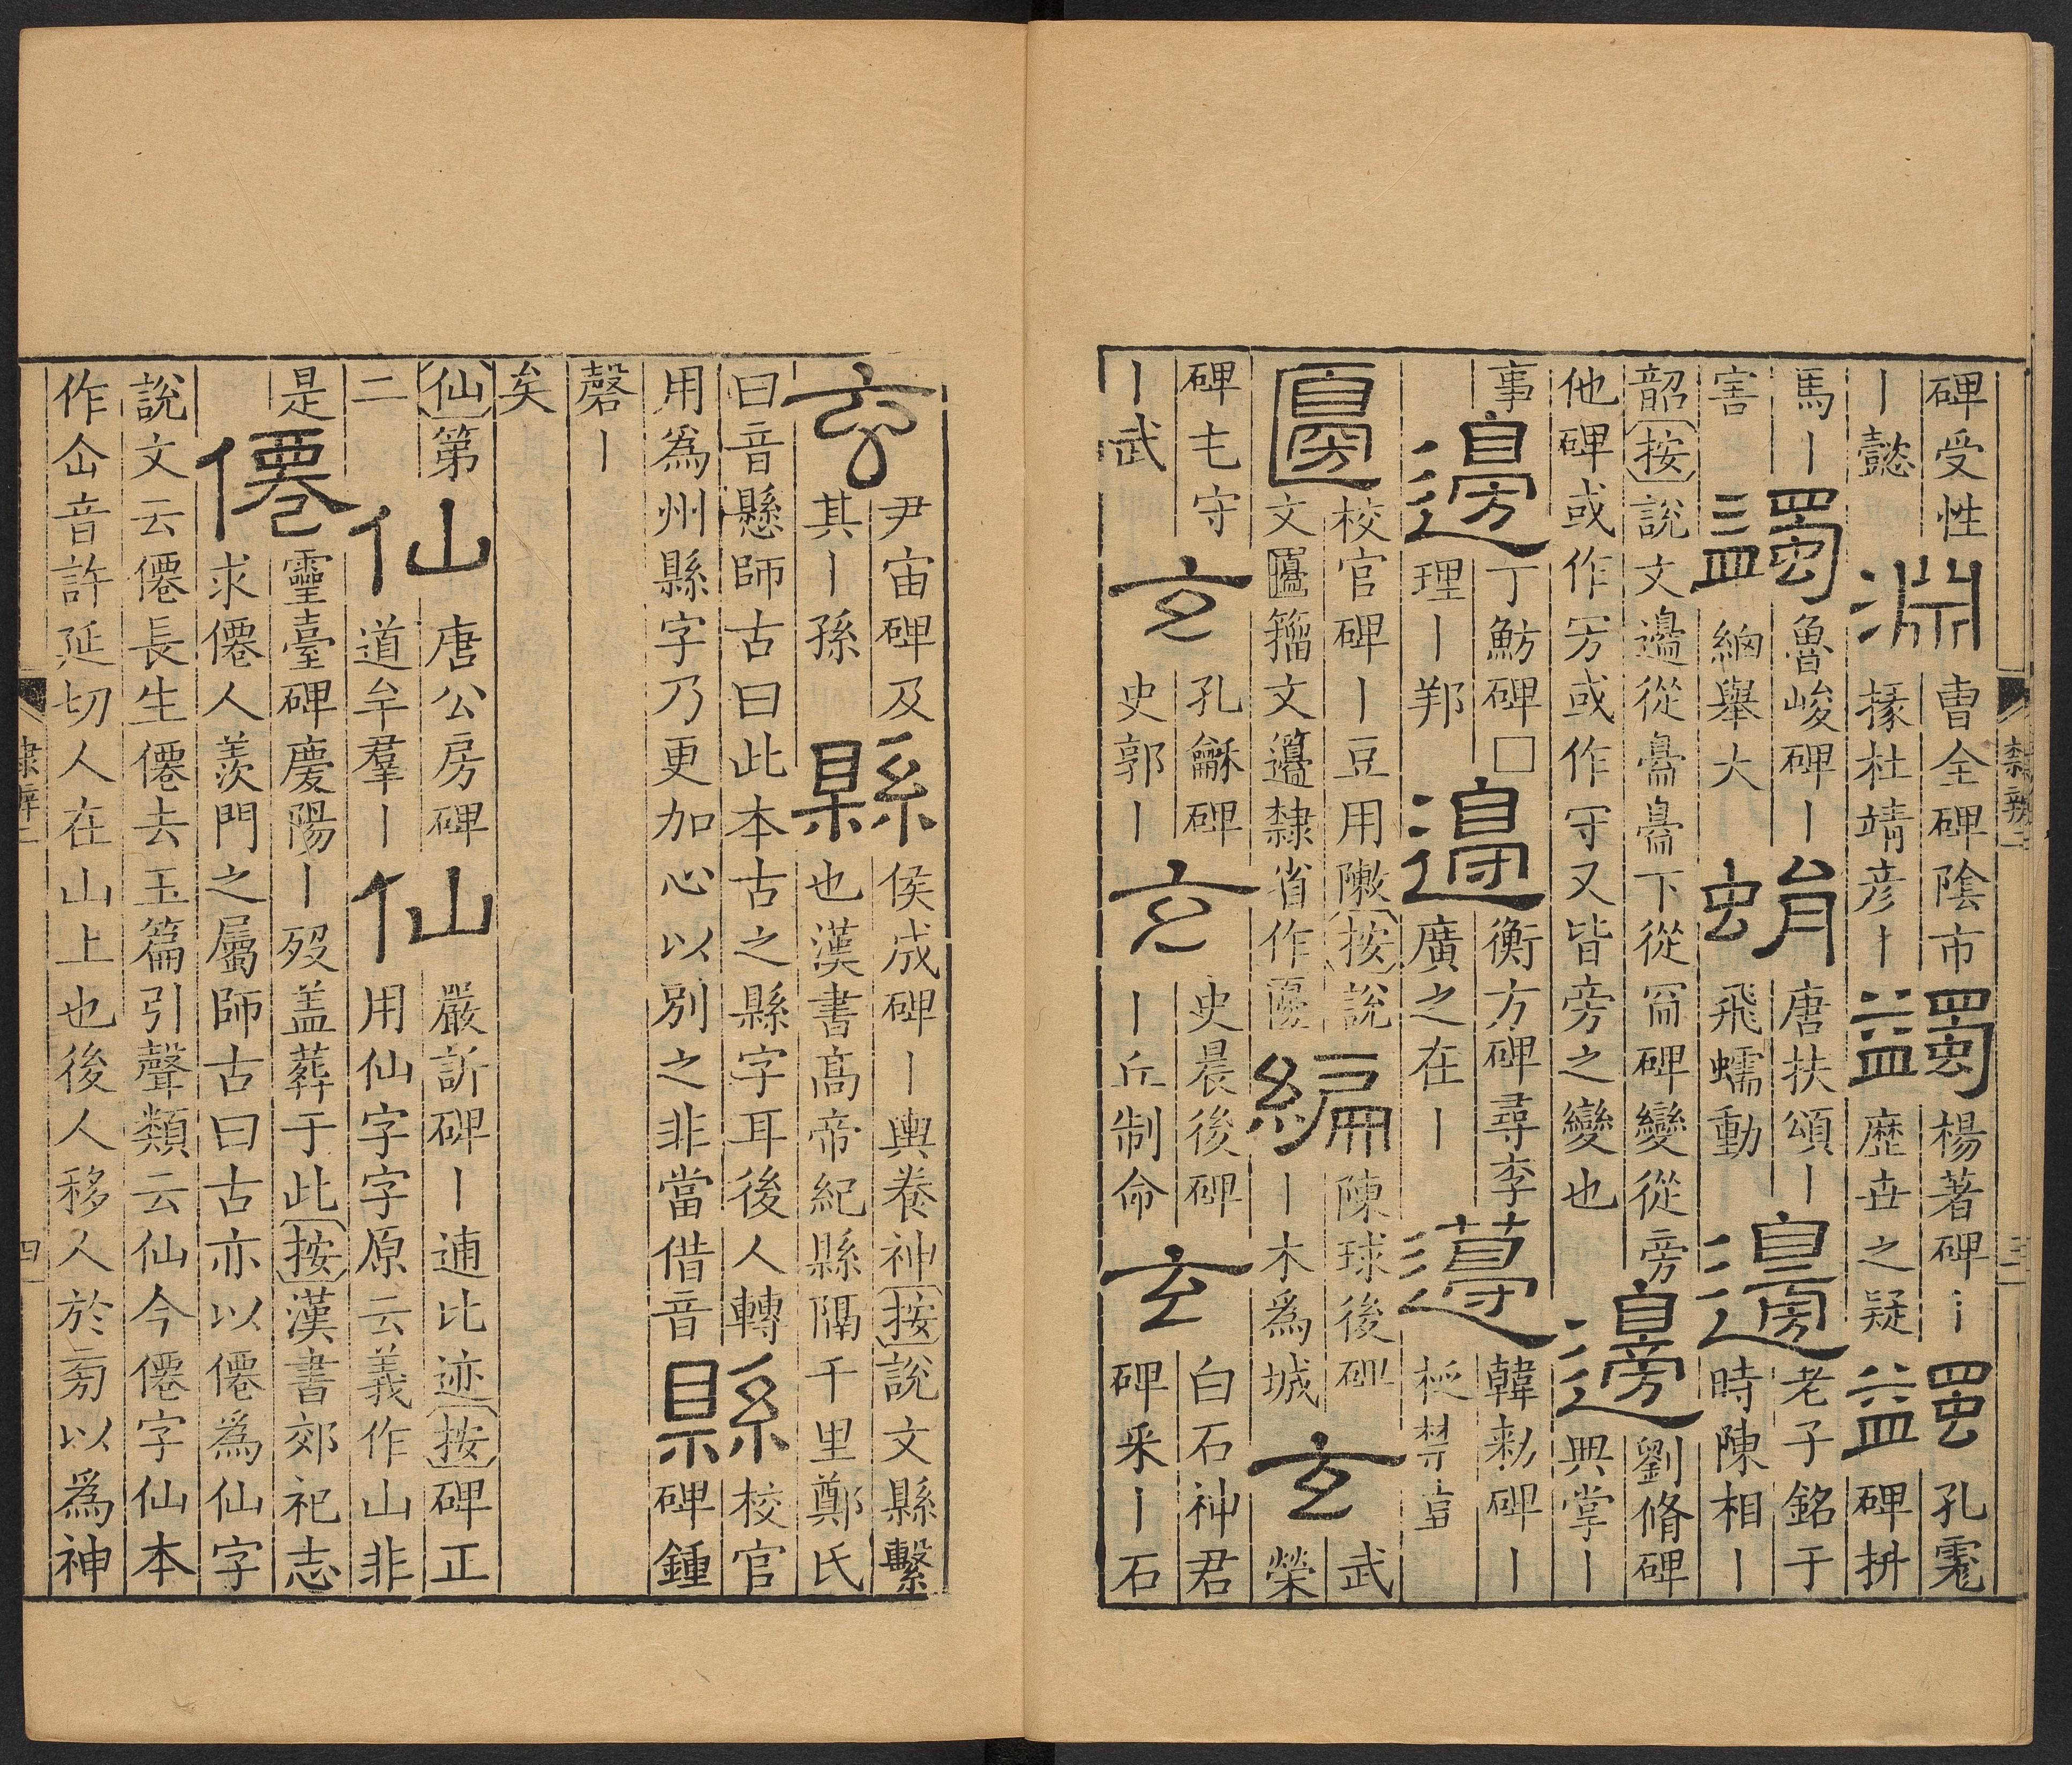 碑受性
丨懿
淵
曹全碑陰市
掾杜靖彦丨
蠲
楊著碑丨
歷世之疑
蠲
孔彪
碑拼
馬丨
害
蠲
魯峻碑丨
細舉大
蜎
唐扶頌丨
飛蠕動
邊
老子銘于
時陳相丨
韶按說文邊從臱臱下從冏碑變從旁
他碑或作㝑或作守又皆旁之變也
邊
劉脩碑
典掌丨
事
邊
丁魴碑□
理丨郡
邊
衡方碑尋李
廣之在丨
邊
韓勑碑丨
柉禁壴
校官碑丨豆用陳按說
文籀文籩隸省作
編
陳球後碑
丨木爲城
玄
武
榮
碑屯守
丨武
玄
孔龢碑
史郭丨
玄
史晨後碑
丨丘制命
玄
白石神君
碑采丨石
隸辨二
三
玄
尹宙碑及
其丨孫
縣
侯成碑丨輿養神按說文縣繫
也漢書高帝紀縣隔千里鄭氏
曰音懸師古曰此本古之縣字耳後人轉
用爲州縣字乃更加心以別之非當借音
縣
校官
碑鍾
磬丨
矣
仙第
二
仙
唐公房碑
道牟羣丨
仙
嚴訢碑丨逋比迹按碑正
用仙字字原云義作山非
是
僊
靈臺碑慶陽丨歿蓋葬于此按漢書郊祀志
求僊人羨門之屬師古曰古亦以僊爲仙字
說文云僊長生僊去玉篇引聲類云仙今僊字仙本
作仚音許延切人在山上也後人移人於旁以爲神
隸辨二
四